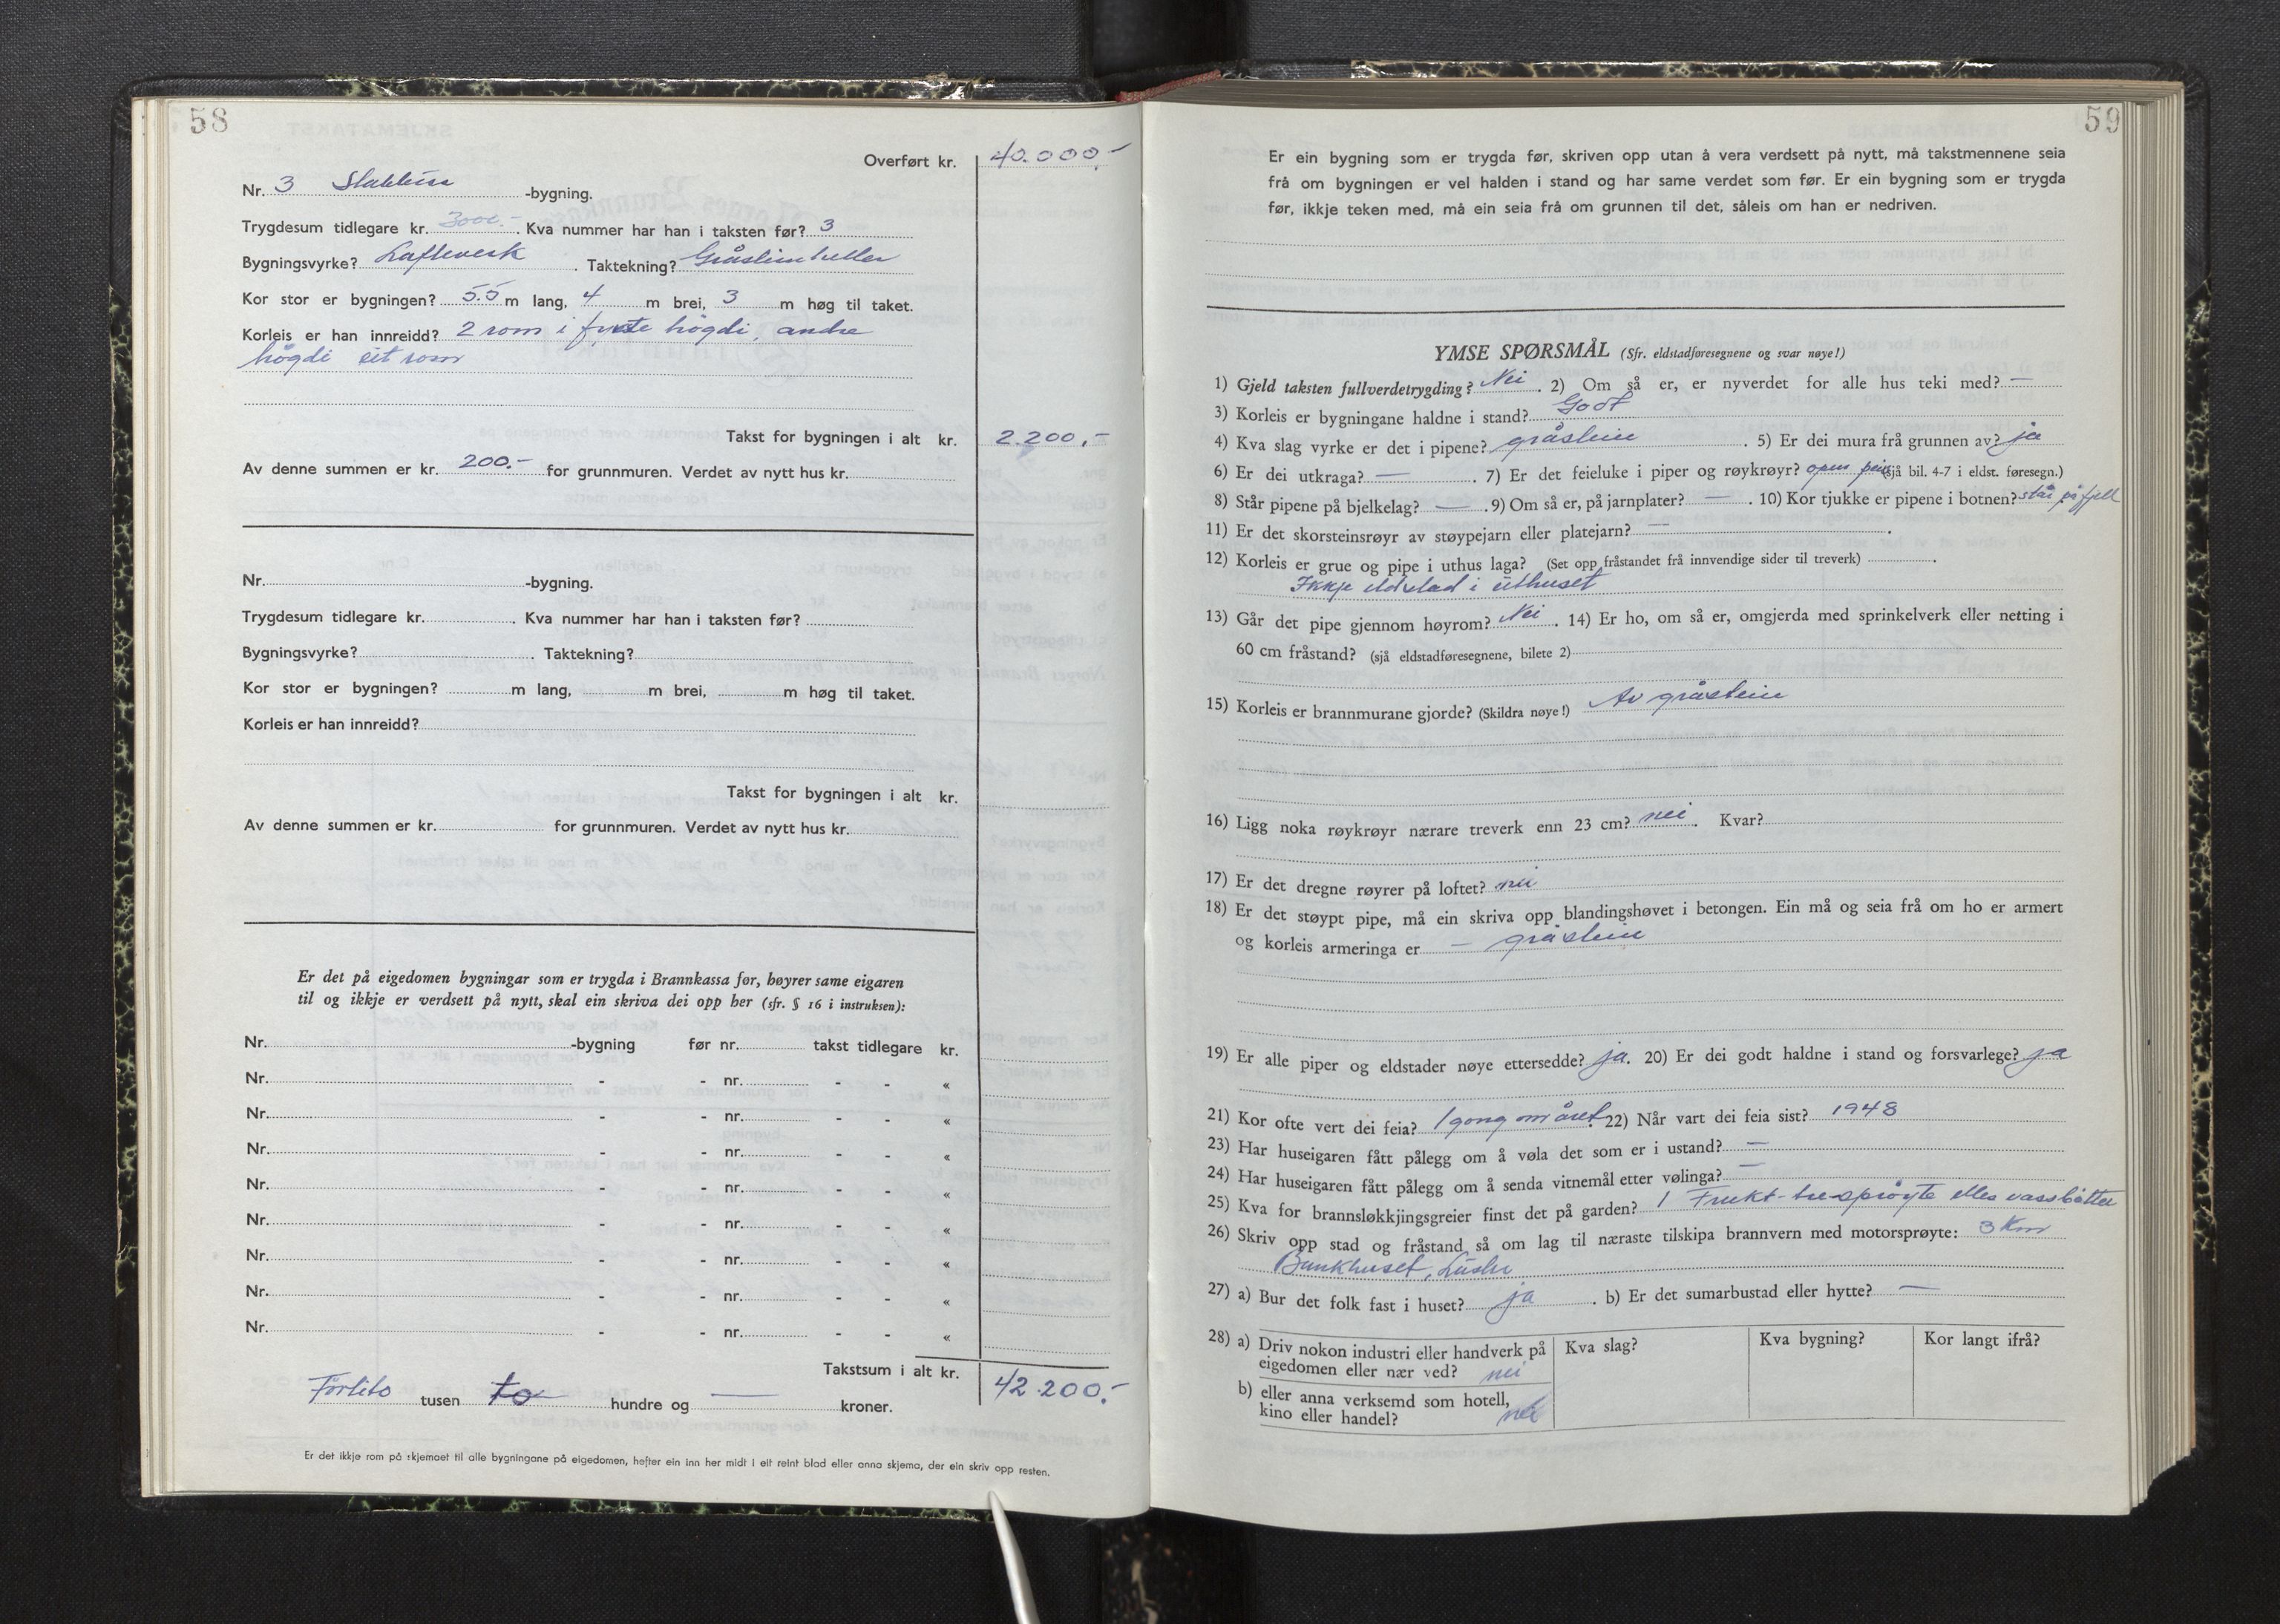 58
Overført kr. 40.000,-
Nr. 3 Stabburs -bygning.
Trygdesum tidlegare kr. 3000.- . Kva nummer har han i taksten før? 3
Bygningsvyrke? Lafteverk . Taktekning? Gråsteinheller
Kor stor er bygningen? 5.5 m lang, 4 m brei, 3 m høg til taket.
Korleis er han innreidd? 2 rom i fyrste högdi, andre
högdi eit rom
Takst for bygningen i alt kr. 2.200,-
Av denne summen er kr. 200.- for grunnmuren. Verdet av nytt hus kr.
Nr. -bygning.
Trygdesum tidlegare kr. . Kva nummer har han i taksten før?
Bygningsvyrke? . Taktekning?
Kor stor er bygningen? m lang, m brei, m høg til taket.
Korleis er han innreidd?
Takst for bygningen i alt kr.
Av denne summen er kr. for grunnmuren. Verdet av nytt hus kr.
Er det på eigedomen bygningar som er trygda i Brannkassa før, høyrer same eigaren
til og ikkje er verdsett på nytt, skal ein skriva dei opp her (sfr. § 16 i instruksen):
Nr. -bygning før nr. takst tidlegare kr.
Nr. - - nr. - - «
Nr. - - nr. - - «
Nr. - - nr. - - «
Nr. - - nr. - - «
Nr. - - nr. - - «
Nr. - - nr. - - «
Nr. - - nr. - - «
Nr. - - nr. - - «
Takstsum i alt kr. 42.200.-
Førtito tusen to hundre og — kroner.
Er det ikkje rom på skjemaet til alle bygningane på eigedomen, hefter ein inn her midt i eit reint blad eller anna skjema, der ein skriv opp resten.
59
Er ein bygning som er trygda før, skriven opp utan å vera verdsett på nytt, må takstmennene seia
frå om bygningen er vel halden i stand og har same verdet som før. Er ein bygning som er trygda
før, ikkje teken med, må ein seia frå om grunnen til det, såleis om han er nedriven.
YMSE SPØRSMÅL (Sfr. eldstadføresegnene og svar nøye!)
1) Gjeld taksten fullverdetrygding? Nei . 2) Om så er, er nyverdet for alle hus teki med? —
3) Korleis er bygningane haldne i stand? Godt
4) Kva slag vyrke er det i pipene? gråstein . 5) Er dei mura frå grunnen av? ja
6) Er dei utkraga? — . 7) Er det feieluke i piper og røykrøyr? open peis (sjå bil. 4-7 i eldst. føresegn.)
8) Står pipene på bjelkelag? — . 9) Om så er, på jarnplater? — . 10) Kor tjukke er pipene i botnen? står på fjell
11) Er det skorsteinsrøyr av støypejarn eller platejarn? — .
12) Korleis er grue og pipe i uthus laga? (Set opp fråstandet frå innvendige sider til treverk) .
Ikkje eldstad i uthuset
13) Går det pipe gjennom høyrom? Nei . 14) Er ho, om så er, omgjerda med sprinkelverk eller netting i
60 cm fråstand? (sjå eldstadføresegnene, bilete 2)
15) Korleis er brannmurane gjorde? (Skildra nøye!) Av gråstein
16) Ligg noka røykrøyr nærare treverk enn 23 cm? nei . Kvar?
17) Er det dregne røyrer på loftet? nei
18) Er det støypt pipe, må ein skriva opp blandingshøvet i betongen. Ein må og seia frå om ho er armert
og korleis armeringa er — gråstein
19) Er alle piper og eldstader nøye ettersedde? ja. 20) Er dei godt haldne i stand og forsvarlege? ja
21) Kor ofte vert dei feia? 1 gong om året . 22) Når vart dei feia sist? 1948
23) Har huseigaren fått pålegg om å vøla det som er i ustand? —
24) Har huseigaren fått pålegg om å senda vitnemål etter vølinga? —
25) Kva for brannsløkkjingsgreier finst det på garden? 1 Frukt-tre-spröyte elles vassbötter
26) Skriv opp stad og fråstand så om lag til næraste tilskipa brannvern med motorsprøyte: 3 Km
Bankhuset, Luster
27) a) Bur det folk fast i huset? ja . b) Er det sumarbustad eller hytte? —
28) a) Driv nokon industri eller handverk på eigedomen eller nær ved? nei Kva slag? Kva bygning? Kor langt ifrå?
b) eller anna verksemd som hotell,
kino eller handel? nei